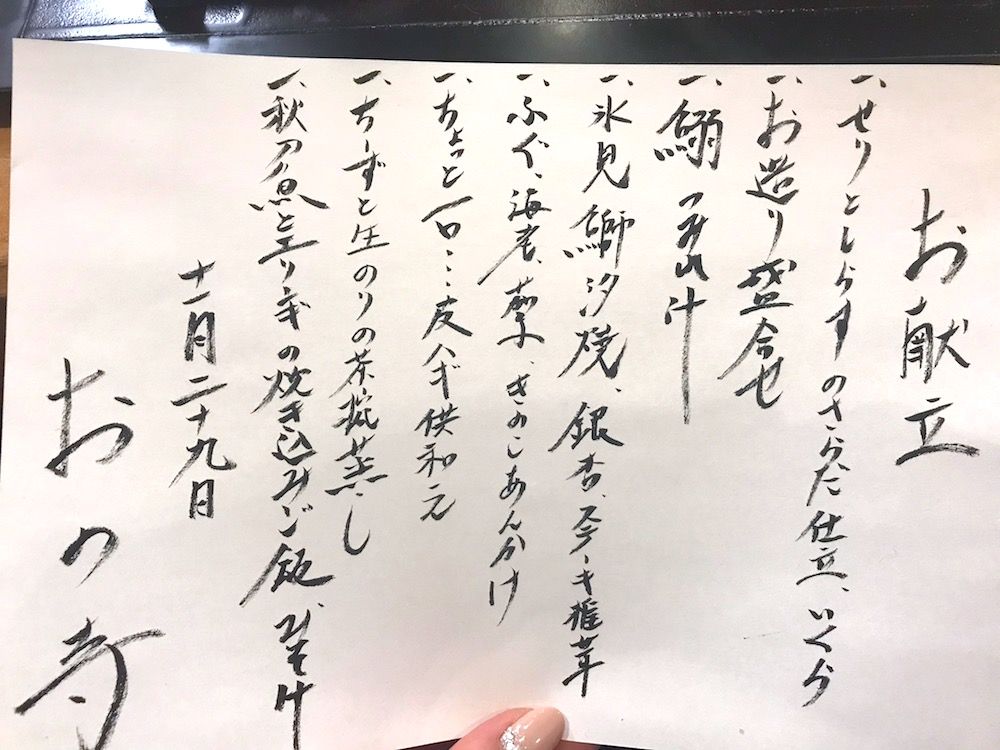 お献立
一、せりとしらすのさらだ仕立、いくら
一、お造り盛合せ
一、鰯つみ汁
一、氷見鰤汐焼、銀杏、ステーキ椎茸
一、ふぐ、海老、蕪、きのこあんかけ
一、ちょっと一口…皮ハギ供和え
一、ちーずと生のりの茶椀蒸し
一、秋刀魚とエリンギの炊き込みご飯、みそ汁
十一月二十九日
おの寺